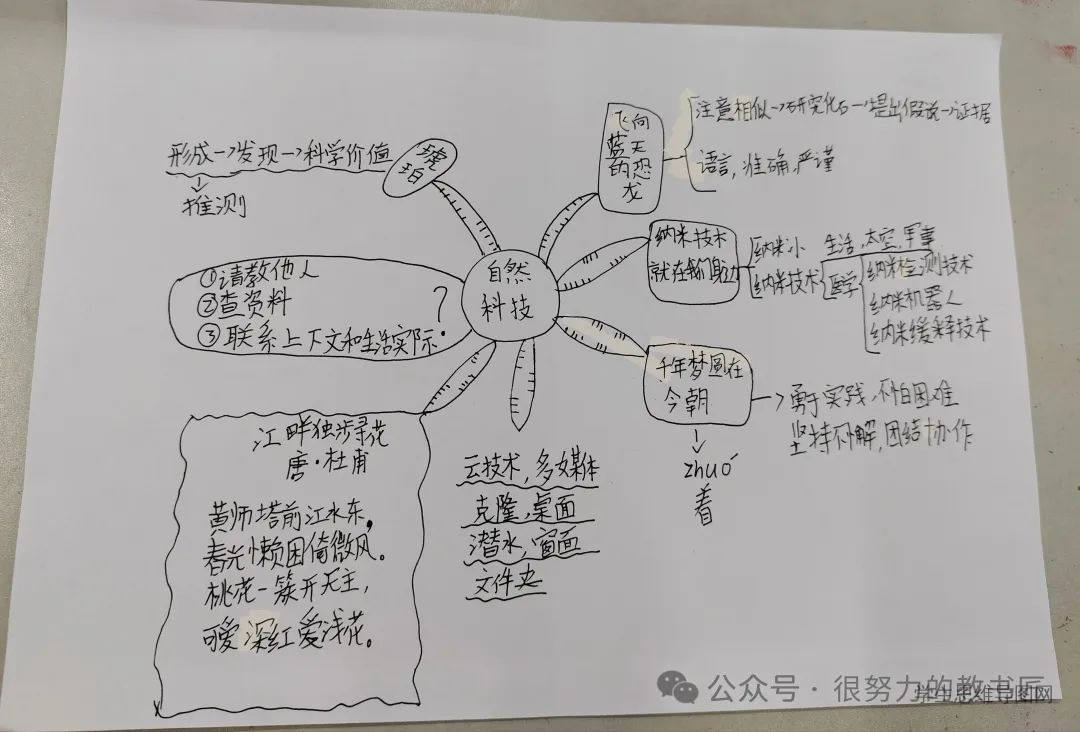 自然
科技
琥
珀
形成→发现→科学价值
推测
①请教他人
②查资料
③联系上下文和生活实际.
?
江畔独步寻花
唐·杜甫
黄师塔前江水东,
春光懒困倚微风。
桃花一簇开无主,
可爱深红爱浅花。
云技术,多媒体
克隆,桌面
潜水,窗面
文件夹
飞向
蓝天
的恐
龙
注意相似→研究化石→提出假说→证据
语言,准确,严谨
纳米技术
就在我们身边
纳米小
纳米技术
生活,太空,军事
医学
纳米检测技术
纳米机器人
纳米缓释技术
千年梦圆在
今朝
→勇于实践,不怕困难
坚持不懈,团结协作
zhuó
着
公众号·很努力的教书匠
学生思维导图网